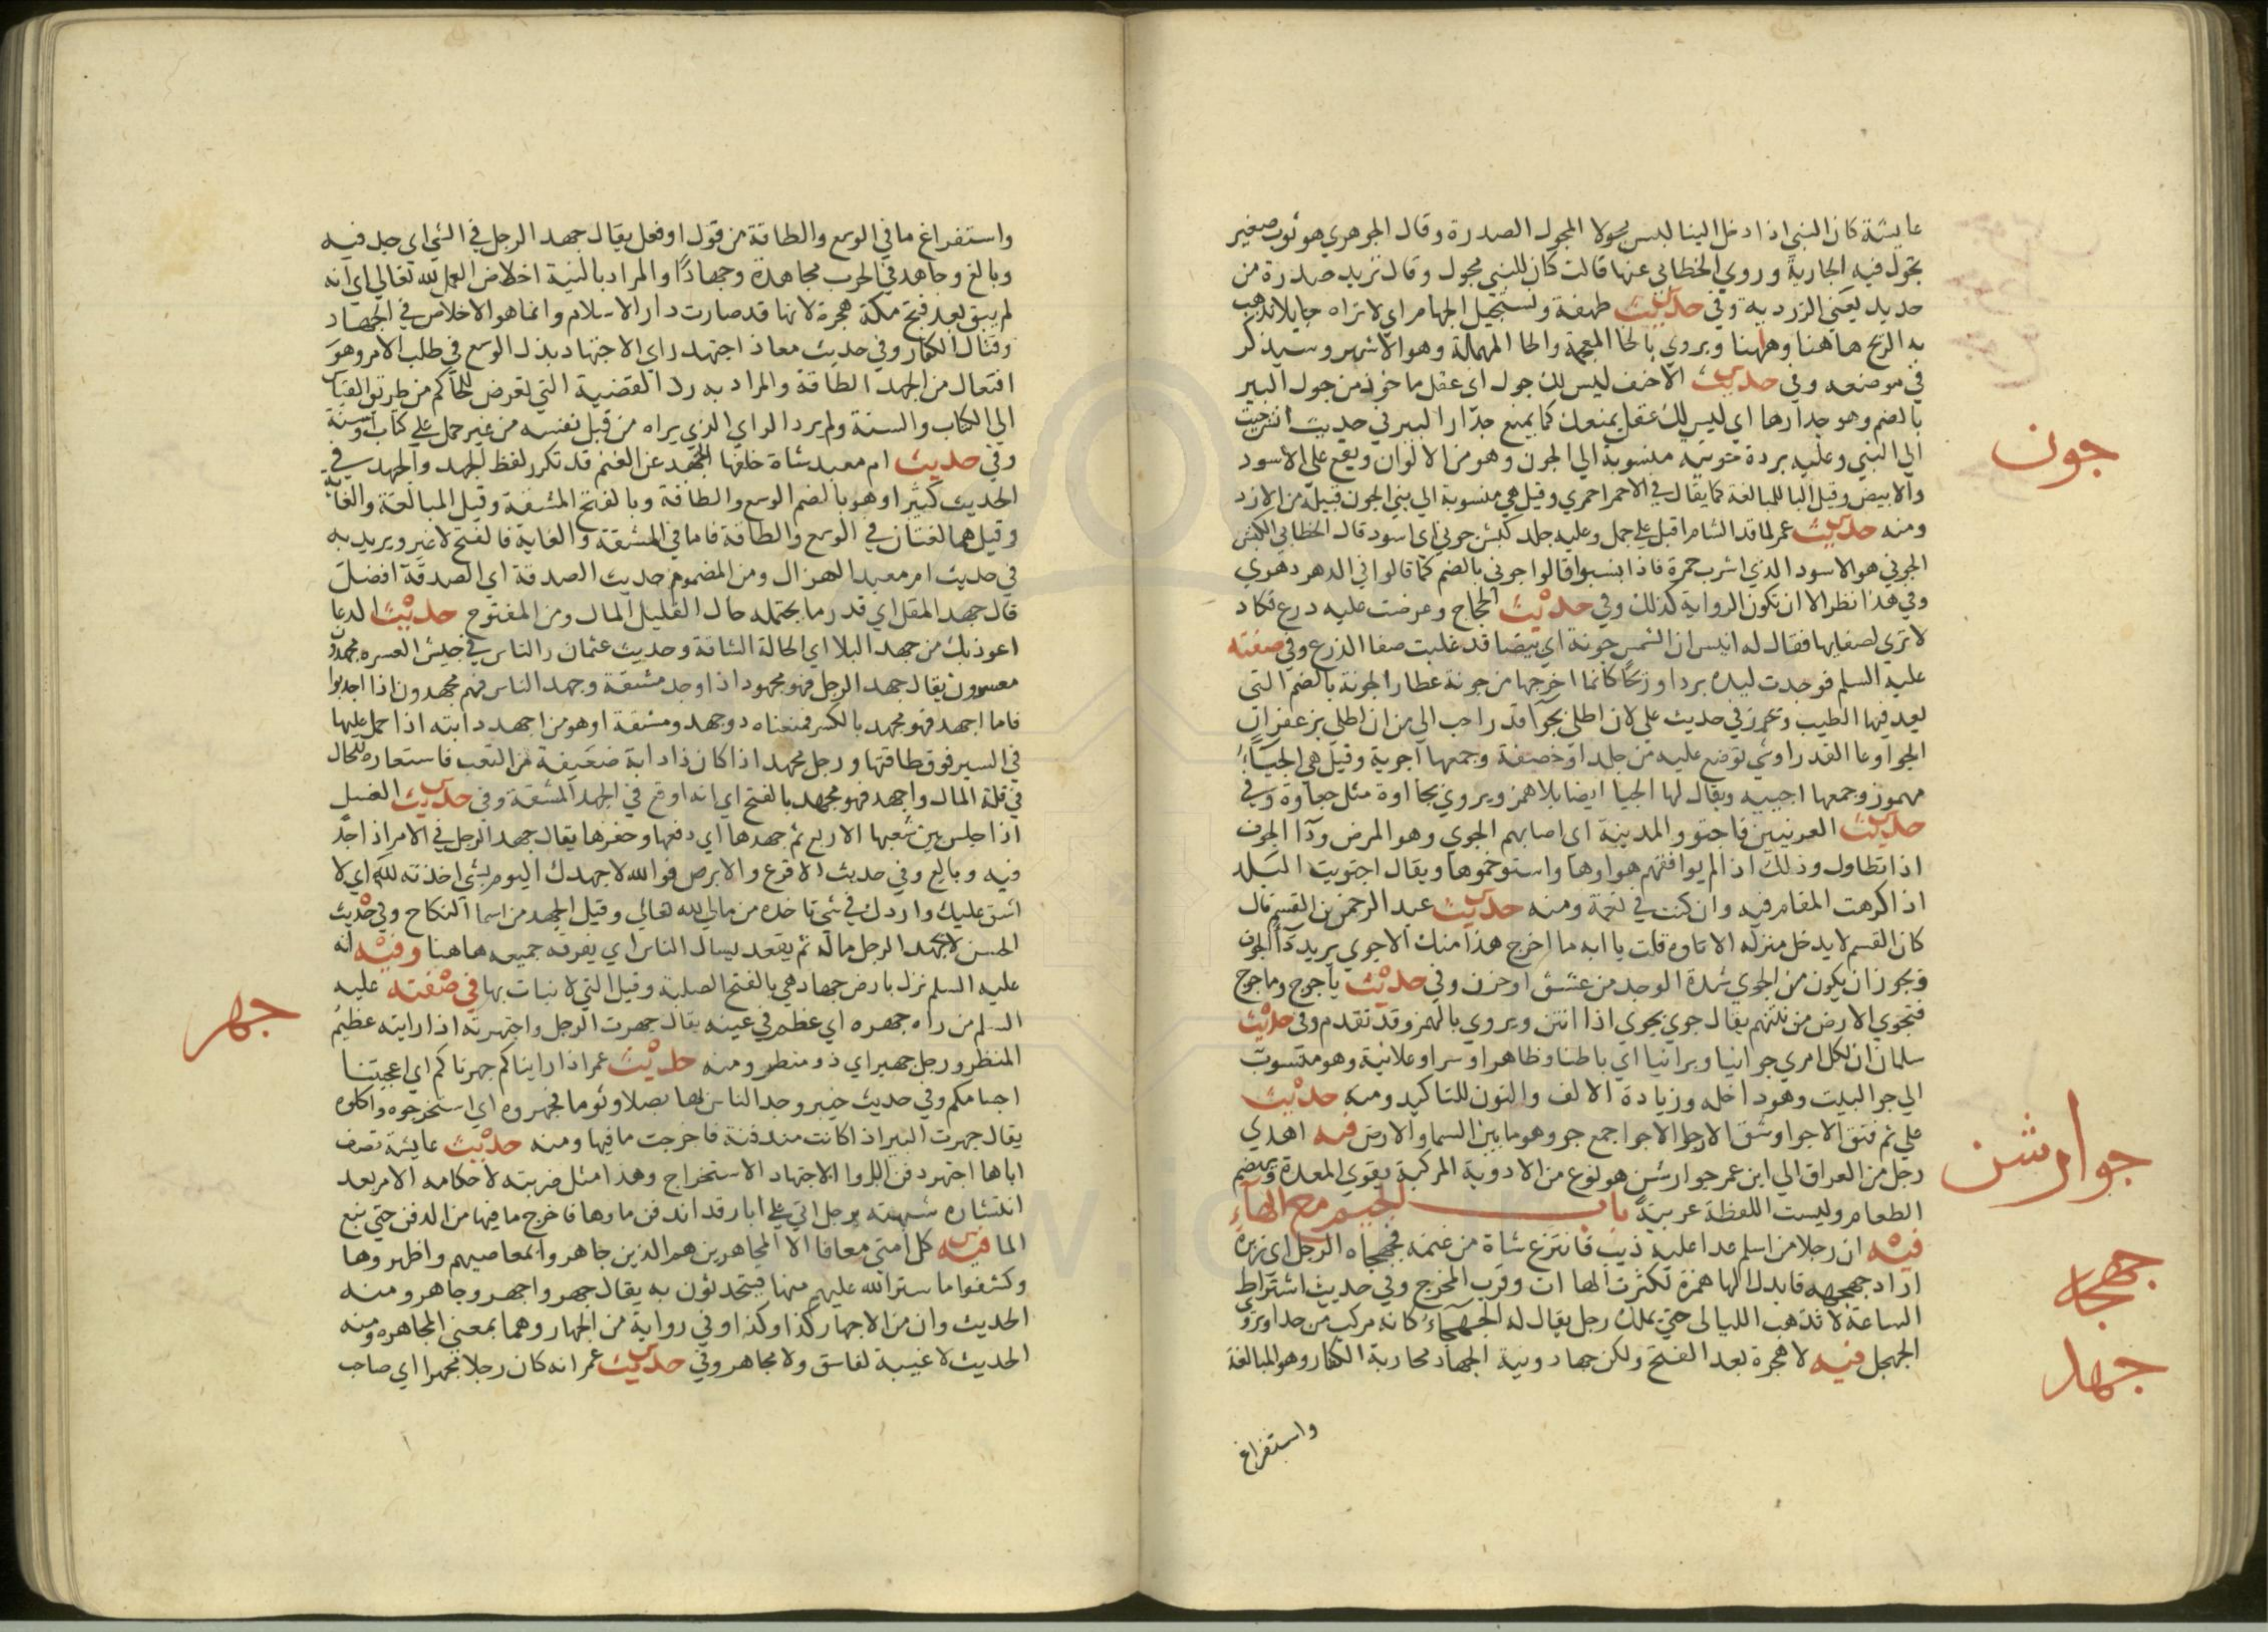 عايشة كان النبي اذا دخل الينا لبس مجولا المجول الصدرة وقال الجوهري هو ثوب صغير
تجول فيه الجارية وروي الخطابي عنها قالت كان للنبي مجول وقال تريد صدرة من
حديد يعني الزردية وفي حديث طهفة ونستجيل الجهام اي لا نراه جايلا تذهب
به الريح هاهنا وهاهنا ويروي بالخا المعجمة والحا المهملة وهو الاشهر وسيذكر
في موضعه وفي حديث الاحنف ليس لك جول اي عقل ماخوذ من جول البير
بالضم وهو جدارها اي ليس لك عقل يمنعك كما يمنع جدار البير في حديث انس جيت
الي النبي وعليه بردة جونية منسوبة الي الجون وهو من الالوان ويقع علي الاسود
والابيض وقيل اليا للمبالغة كما يقال في الاحمر احمري وقيل هي منسوبة الي بني الجون قبيلة من الازد
ومنه حديث عمر لما قد الشام اقبل علي جمل وعليه جلد كبش جوني اي اسود قال الخطابي الكبش
الجوني هو الاسود الذي اشرب حمرة فاذا نسبوا قالوا جوني بالضم كما قالوا في الدهر دهري
وفي هذا نظر الا ان تكون الرواية كذلك وفي حديث الحجاج وعرضت عليه درع تكاد
لا تري لصفايها فقال له انيس ان الشمس جونة اي بيضا قد غلبت صفا الدرع وفي صفته
عليه السلم فوجدت ليده بردا وريحا كانما اخرجها من جونة عطار الجونة بالضم التي
يعد فيها الطيب وتحرز في حديث علي لان اطلي بجوا قدر احب الي من ان اطلي بزعفران
الجوا وعا القدر او شي توضع عليه من جلد او خصفة وجمعها اجوية وقيل هي الجياء
مهموز وجمعها اجيية ويقال لها الجيا ايضا بلا همز ويروي بجااوة مثل جعاوة وفي
حديث العرنيين فاجتووا المدينة اي اصابهم الجوي وهو المرض ودا الجوف
اذا تطاول وذلك اذا لم يوافقهم هواوها واستوخموها ويقال اجتويت البلد
اذا كرهت المقام فيه وان كنت في نعمة ومنه حديث عبد الرحمن بن القسم قال
كان القسم لا يدخل منزله الا تاوه قلت يا ابه ما اخرج هذا منك الا جوي يريد دا الجوف
ويجوز ان يكون من الجوي شدة الوجد من عشق او حزن وفي حديث ياجوج وماجوج
فتجوي الارض من نتنهم يقال جوي يجوي اذا انتن ويروي بالهمز وقد تقدم وفي حديث
سلمان ان لكل امري جوانيا وبرانيا اي باطنا وظاهرا وسرا وعلانية وهو منسوب
الي جو البيت وهو داخله وزيادة الالف والنون للتاكيد ومنه حديث
علي ثم فتق الاجوا وشق الارجا الاجوا جمع جو وهو ما بين السما والارض فيه اهدي
رجل من العراق الي ابن عمر جوارشن هو نوع من الادوية المركبة يقوي المعدة ويهضم
الطعام وليست اللفظة عربية باب الجيم مع الهاء
فيه ان رجلا من اسلم عدا عليه ذيب فانتزع شاة من غنمه فجهجاه الرجل اي زبره
اراد جهجهه فابدل الها همزة لكثرت الهاات وقرب المخرج وفي حديث اشتراط
الساعة لا تذهب الليالي حتي يملك رجل يقال له الجهجاء كانه مركب من هذا ويروي
الجهجل فيه لا هجرة بعد الفتح ولكن جهاد ونية الجهاد محاربة الكفار وهو المبالغة
واستفراغ
جون
جوارشن
جهجا
جهد
واستفراغ ما في الوسع والطاقة من قول او فعل يقال جهد الرجل في الشي اي جد فيه
وبالغ وجاهد في الحرب مجاهدة وجهادا والمراد بالنية اخلاص العمل لله تعالي اي انه
لم يبق بعد فتح مكة هجرة لانها قد صارت دار الاسلام وانما هو الاخلاص في الجهاد
وقتال الكفار وفي حديث معاذ اجتهد راي الاجتهاد بذل الوسع في طلب الامر وهو
افتعال من الجهد الطاقة والمراد به رد القضية التي تعرض للحاكم من طريق القياس
الي الكتاب والسنة ولم يرد الراي الذي يراه من قبل نفسه من غير حمل علي كتاب وسنة
وفي حديث ام معبد شاة خلفها الجهد عن الغنم قد تكرر لفظ الجهد والجهد في
الحديث كثيرا وهو بالضم الوسع والطاقة وبالفتح المشقة وقيل المبالغة والغاية
وقيل هما لغتان في الوسع والطاقة فاما في المشقة والغاية فالفتح لا غير ويريد به
في حديث ام معبد الهزال ومن المضموم حديث الصدقة اي الصدقة افضل
قال جهد المقل اي قدر ما يحتمله حال القليل المال ومن المفتوح حديث الدعا
اعوذ بك من جهد البلا اي الحالة الشاقة وحديث عثمان والناس في جيش العسره مجهدون
معسرون يقال جهد الرجل فهو مجهود اذا وجد مشقة وجهد الناس فهم مجهدون اذا اجدبوا
فاما اجهد فهو مجهد بالكسر فمعناه ذو جهد ومشقة او هو من اجهد دابته اذا حمل عليها
في السير فوق طاقتها ورجل مجهد اذا كان ذا دابة ضعيفة من التعب فاستعاره للحال
في قلة المال واجهد فهو مجهد بالفتح اي انه اوقع في الجهد المشقة وفي حديث الغسل
اذا جلس بين شعبها الاربع ثم جهدها اي دفعها وحفزها يقال جهد الرجل في الامر اذا جد
فيه وبالغ وفي حديث الاقرع والابرص فوالله لا جهدك اليوم بشي اخذته لله اي لا
اشق عليك واردك في شي تاخذه من مالي لله تعالي وقيل الجهد من اسما النكاح وفي حديث
الحسن لا يجهد الرجل ماله ثم يقعد يسال الناس اي يفرقه جميعه هاهنا وفيه انه
عليه السلم نزل بارض جهاد هي بالفتح الصلبة وقيل التي لا نبات بها في صفته عليه
السلم من راه جهره اي عظم في عينه يقال جهرت الرجل واجتهرته اذا رايته عظيم
المنظر ورجل جهير اي ذو منظر ومنه حديث عمر اذا رايناكم جهرناكم اي اعجبتنا
اجسامكم وفي حديث خيبر وجد الناس بها بصلا وثوما فجهروه اي استخرجوه واكلوه
يقال جهرت البير اذا كانت مندفنة فاخرجت ما فيها ومنه حديث عايشة تصف
اباها اجتهر دفن الروا الاجتهار الاستخراج وهذا مثل ضربته لاحكامه الامر بعد
انتشاره شبهته برجل اتي علي ابار قد اندفن ماوها فاخرج ما فيها من الدفن حتي نبع
الما فيه كل امتي معافا الا المجاهرين هم الذين جاهروا بمعاصيهم واظهروها
وكشفوا ما ستر الله عليهم منها فيتحدثون به يقال جهر واجهر وجاهر ومنه
الحديث وان من الاجهار كذا وكذا وفي رواية من الجهار وهما بمعني المجاهره ومنه
الحديث لا غيبة لفاسق ولا مجاهر وفي حديث عمر انه كان رجلا مجهرا اي صاحب
جهر